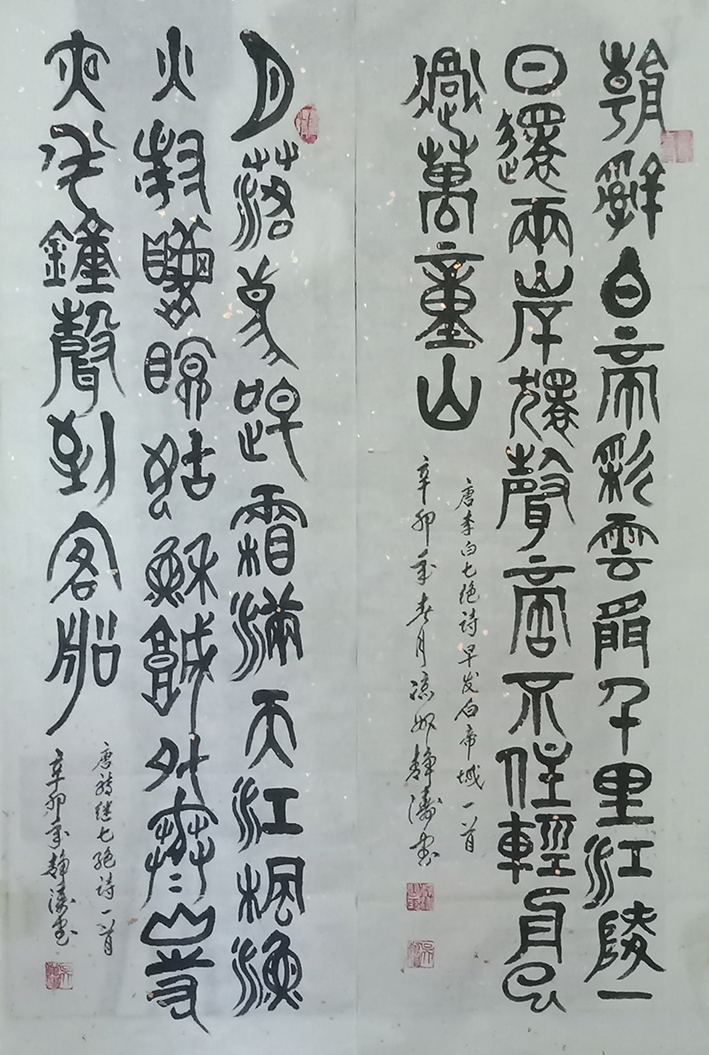 朝辭白帝彩雲間千里江陵一
日還兩岸猿聲啼不住輕舟已
過萬重山
唐李白七绝诗早发白帝城一首
辛卯年春月 静涛书
月落烏啼霜滿天江楓漁
火對愁眠姑蘇城外寒山寺
夜半鐘聲到客船
唐张继七绝诗一首
辛卯年静涛书